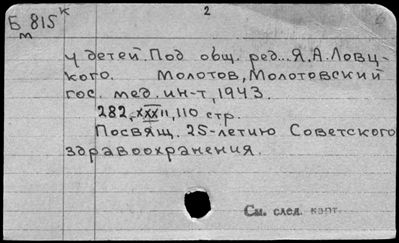 2
Б 815 к
м
у детей. Под общ. ред... Я.А.Ловц-
кого. Молотов, Молотовский
гос. мед. ин-т, 1943.
282, XXXII, 110 стр.
Посвящ. 25-летию Советского
здравоохранения.
См. след. карт.